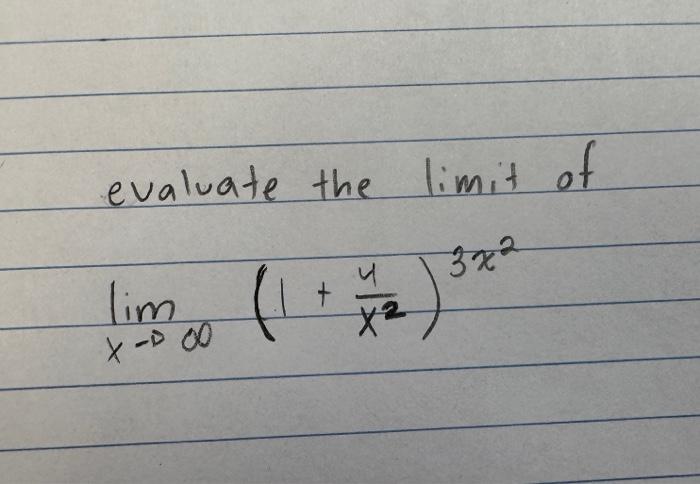 evaluate the limit of
lim x→∞ (1 + 4/x²)^3x²